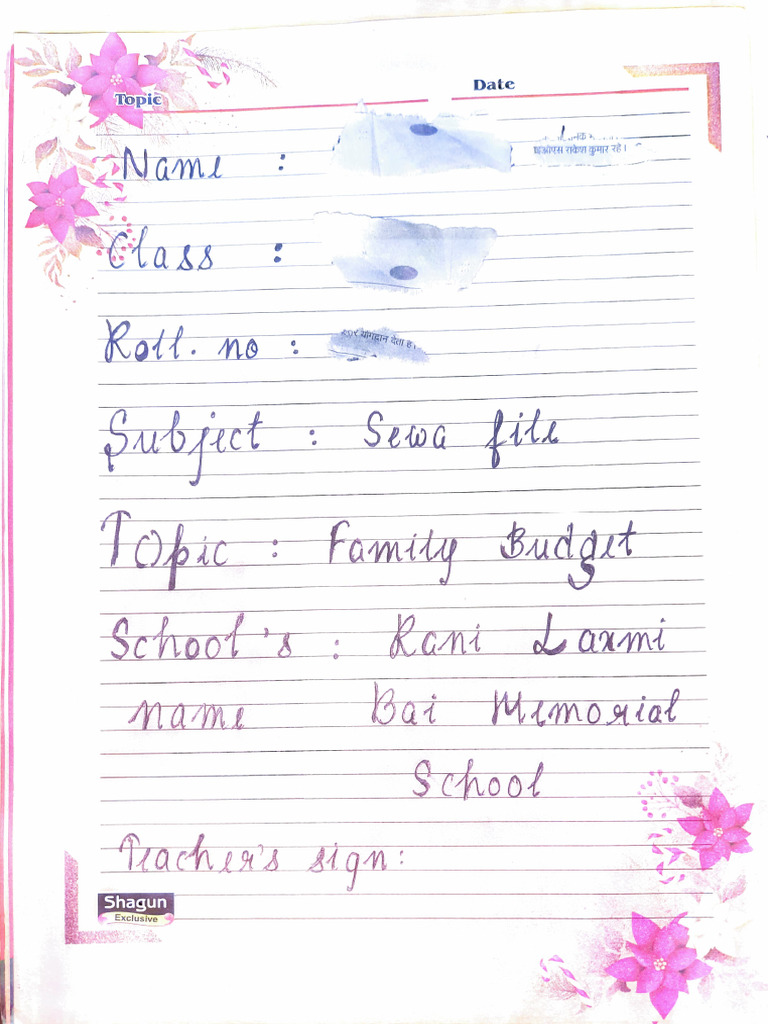 Topic
Date
Name :
छओएस राकेश कुमार रहे।
Class :
Roll. no :
योगदान देता है।
Subject : Sewa file
Topic : Family Budget
School's : Rani Laxmi
name Bai Memorial
School
Teacher's sign:
Shagun
Exclusive